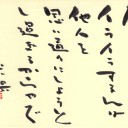 イライラするのは
他人を
思い通りにしようと
し過ぎるからで